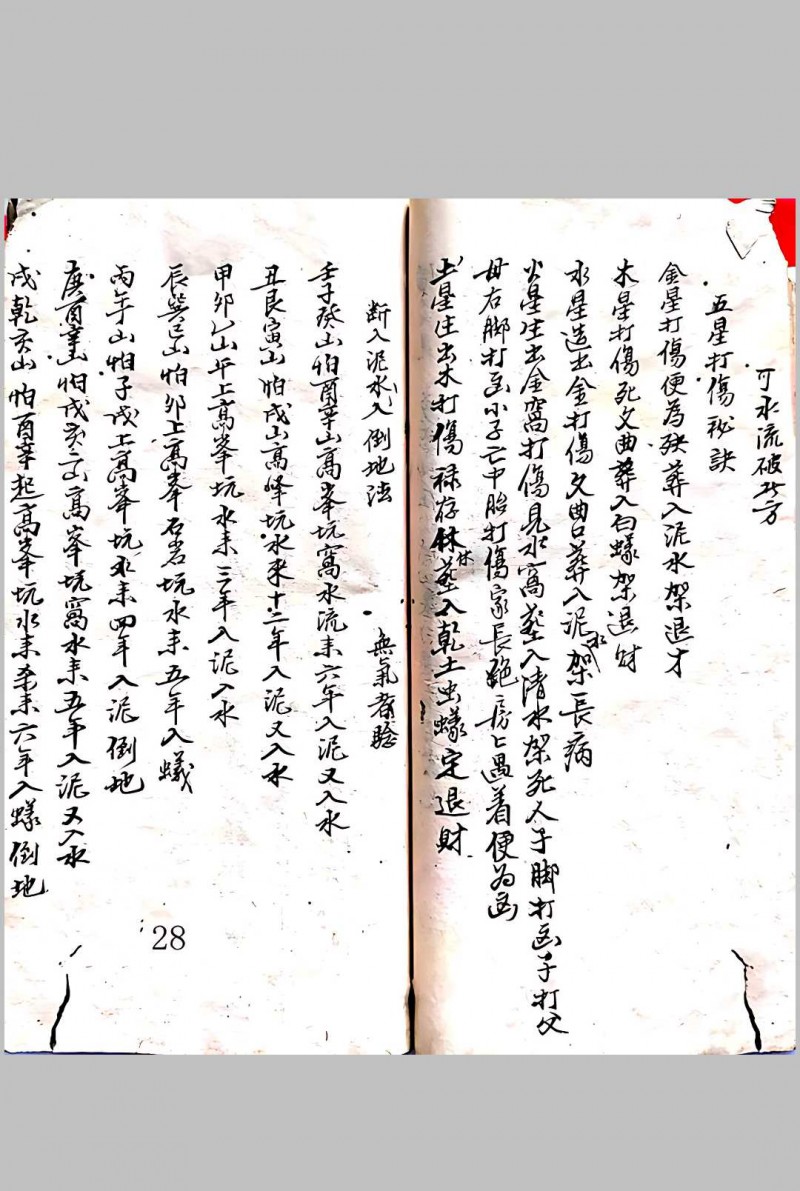 可水流破此方
五星打傷秘訣
金星打傷便為殃葬入泥水架退才
木星打傷死文曲葬入白蟻架退財
水星造出金打傷文曲口葬入泥水架長病
火星生出金窩打傷見水窩葬入清水架死人子脚打凶子打父
母右脚打凶小子亡中胎打傷家長房上遇着便为凶
土星住出木打傷禄存休葬入乾土虫蟻定退財
断入泥水入倒地法
無氣者驗
壬子癸山怕酉辛山高峯坑窩水流來六年入泥又入水
丑艮寅山怕戌山高峰坑水來十二年入泥又入水
甲卯乙山平上高峯坑水來三年入泥入水
辰巽巳山怕卯上高峯石岩坑水來五年入蟻
丙午山怕子戌上高峯坑水來四年入泥倒地
庚酉辛山怕戌亥高峯坑窩水來五年入泥又入水
戌乾亥山怕酉辛起高峯坑水來六年入蟻倒地
28